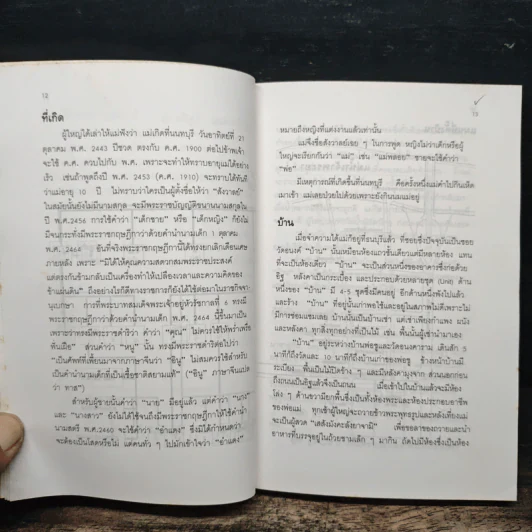 12
ที่เกิด
ผู้ใหญ่ได้เล่าให้แม่ฟังว่า แม่เกิดที่นนทบุรี วันอาทิตย์ที่ 21
ตุลาคม พ.ศ. 2443 ปีชวด ตรงกับ ค.ศ. 1900 ต่อไปข้าพเจ้า
จะใช้ ค.ศ. ควบไปกับ พ.ศ. เพราะจะทำให้ทราบอายุแม่ได้อย่าง
เร็ว เช่นถ้าพูดถึงปี พ.ศ. 2453 (ค.ศ. 1910) จะทราบได้ทันที
ว่าแม่อายุ 10 ปี ไม่ทราบว่าใครเป็นผู้ตั้งชื่อให้ว่า "สังวาลย์"
ในสมัยนั้นยังไม่มีนามสกุล จะมีพระราชบัญญัติขนานนามสกุลใน
ปี พ.ศ.2456 การใช้คำว่า "เด็กชาย" หรือ "เด็กหญิง" ก็ยังไม่
มีจนกระทั่งมีพระราชกฤษฎีกาว่าด้วยคำนำนามเด็ก 1 ตุลาคม
พ.ศ. 2464 อันที่จริงพระราชกฤษฎีกานี้ได้พ่วงยกเลิกเดือนเศษ
ภายหลัง เพราะ "มิได้ให้คุณความสะดวกสมพระราชประสงค์
แต่ตรงกันข้ามกลับเป็นเครื่องทำให้เปลืองเวลาและความคิดของ
ข้าแผ่นดิน" ถึงอย่างไรก็ดีทางราชการก็ยังได้ใช้ต่อมาในราชกิจจา
นุเบกษา การที่พระบาทสมเด็จพระเจ้าอยู่หัวรัชกาลที่ 6 ทรงมี
พระราชกฤษฎีกาว่าด้วยคำนำนามเด็ก พ.ศ. 2464 นี้ขึ้นมาเป็น
เพราะว่าทรงมีพระราชดำริว่า คำว่า "คุณ" ไม่ควรใช้ให้พร่ำเพรื่อ
ฟั่นเฝือ" ส่วนคำว่า "หนู" นั้น ทรงมีพระราชดำริต่อไปว่า
"เป็นศัพท์ที่เพี้ยนมาจากภาษาจีนว่า "อินู" ไม่สมควรใช้สำหรับ
เป็นคำนำนามเด็กที่เป็นเชื้อชาติสยามแท้" ("อินู" ภาษาจีนแปล
ว่า ทาส")
สำหรับผู้ชายนั้นคำว่า "นาย" มีอยู่แล้ว แต่คำว่า "นาง"
และ "นางสาว" ยังไม่ได้ใช้จนถึงมีพระราชกฤษฎีกาให้ใช้คำนำ
นามสตรี พ.ศ. 2460 จะใช้คำว่า "อำแดง" ซึ่งมิได้กำหนดว่า
จะต้องเป็นโสดหรือไม่ แต่คนทั่ว ๆ ไปมักเข้าใจว่า "อำแดง"
13
หมายถึงหญิงที่แต่งงานแล้วเท่านั้น
แม่จึงชื่อสังวาลย์เฉย ๆ ในการพูด หญิงไม่ว่าเด็กหรือผู้
ใหญ่จะเรียกกันว่า "แม่" เช่น "แม่พลอย" ชายจะใช้คำว่า
"พ่อ"
มีเหตุการณ์ที่เกิดขึ้นที่นนทบุรี คือครั้งหนึ่งแม่ดำไปกินเห็ด
เมาเข้า แม่เลยป่วยไปด้วยเพราะยังกินนมแม่อยู่
บ้าน
เมื่อจำความได้แม่ก็อยู่ธนบุรีแล้ว ที่ซอยซึ่งปัจจุบันเป็นซอย
วัดอนงค์ "บ้าน" นั้นเหมือนห้องแถวชั้นเดียวแต่มีหลายห้อง แทน
ที่จะเป็นห้องเดียว "บ้าน" จะเป็นส่วนหนึ่งของอาคารซึ่งก่อด้วย
อิฐ หลังคาเป็นกระเบื้อง และประกอบด้วยหลายชุด (Unit) ด้าน
หนึ่งของ "บ้าน" มี 4-5 ชุดซึ่งมีคนอยู่ อีกด้านหนึ่งพังไปแล้ว
และร้าง "บ้าน" ที่อยู่นั้นเก่าพอใช้และอยู่ในสภาพไม่ดีเพราะไม่
มีการซ่อมแซมเลย บ้านนั้นเป็นบ้านเช่า แต่เช่าเพียงกำแพง ผนัง
และหลังคา ทุกสิ่งทุกอย่างที่เป็นไม้ เช่น พื้นนั้นผู้เช่านำมาเอง
"บ้าน" อยู่ระหว่างบ้านพ่อชูและวัดอนงคาราม เดินสัก 5
นาทีก็ถึงวัดและ 10 นาทีก็ถึงบ้านเก่าของพ่อชู ข้างหน้าบ้านมี
ระเบียง พื้นเป็นไม้ปิดข้าง ๆ และมีหลังคามุงจาก ส่วนนอกก่อน
ถึงถนนเป็นอิฐแล้วจึงเป็นถนน เมื่อเข้าไปในบ้านแล้วจะมีห้อง
โล่ง ๆ ด้านขวามียกพื้นซึ่งเป็นทั้งห้องพระและห้องประกอบอาชีพ
ของพ่อแม่ ทุกเช้าผู้ใหญ่จะถวายข้าวพระพุทธรูปและหลังเที่ยงแม่
จะเป็นผู้สวด "เสสังมังคะลังยาจามิ" เพื่อขอลาของถวายและนำ
อาหารที่บรรจุอยู่ในถ้วยชามเล็ก ๆ มากิน ถัดไปมีห้องซึ่งเป็นห้อง